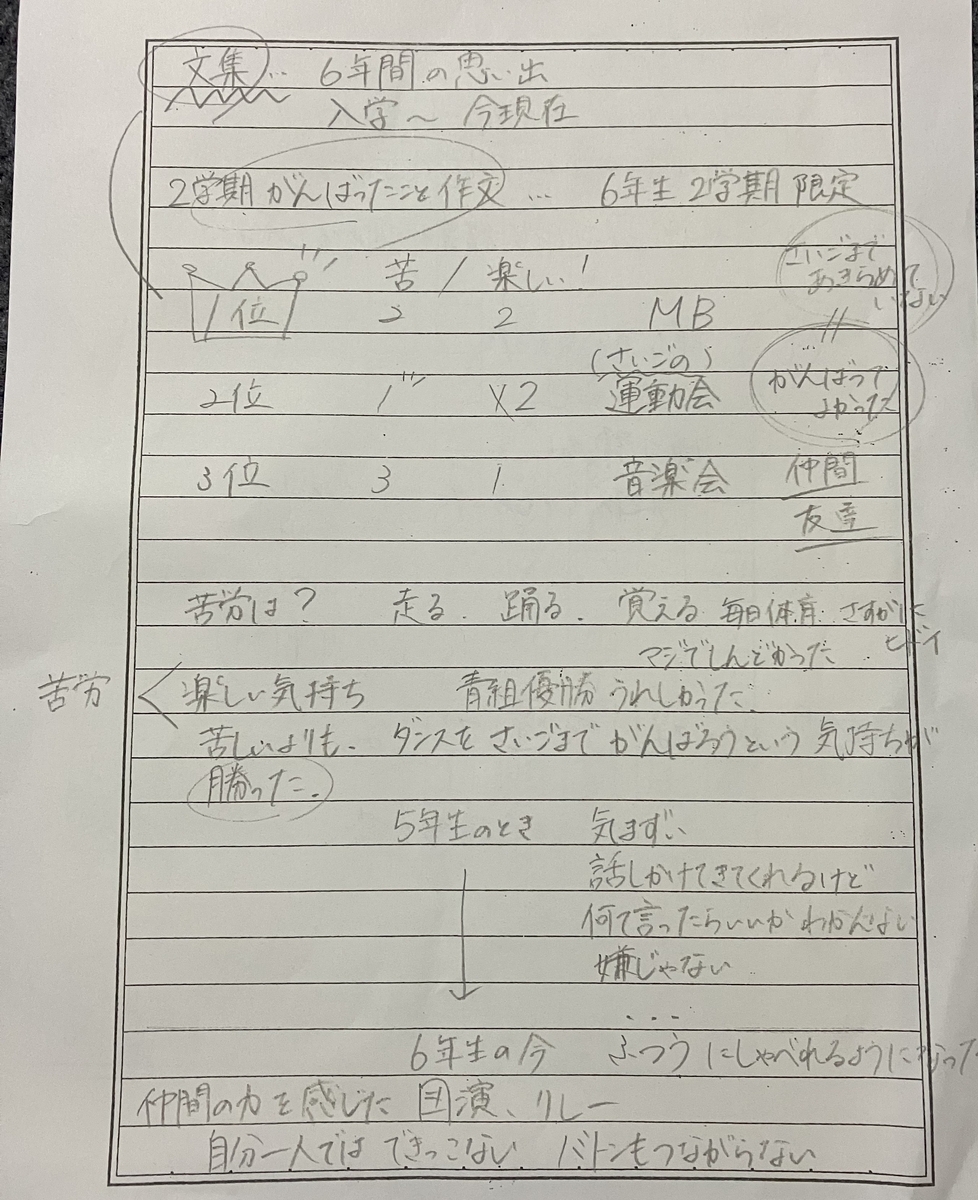 文集… 6年間の思い出
入学～今現在
2学期がんばったこと作文 … 6年生2学期限定
苦/楽しい!
さいごまで
あきらめて
いない
1位 2 2 MB
〃
(さいごの)
2位 1 2 運動会
がんばって
よかった
3位 3 1 音楽会 仲間
友達
苦労は? 走る. 踊る. 覚える 毎日体育. さすがに
ヒドイ
マジでしんどかった
苦労
楽しい気持ち 青組優勝 うれしかった.
苦しいよりも、ダンスをさいごまでがんばろうという気持ちが
勝った.
5年生のとき 気まずい
話しかけてきてくれるけど
何て言ったらいいかわかんない
嫌じゃない
6年生の今 ふつうにしゃべれるようになった
仲間の力を感じた 団演、リレー
自分一人ではできっこない バトンもつながらない